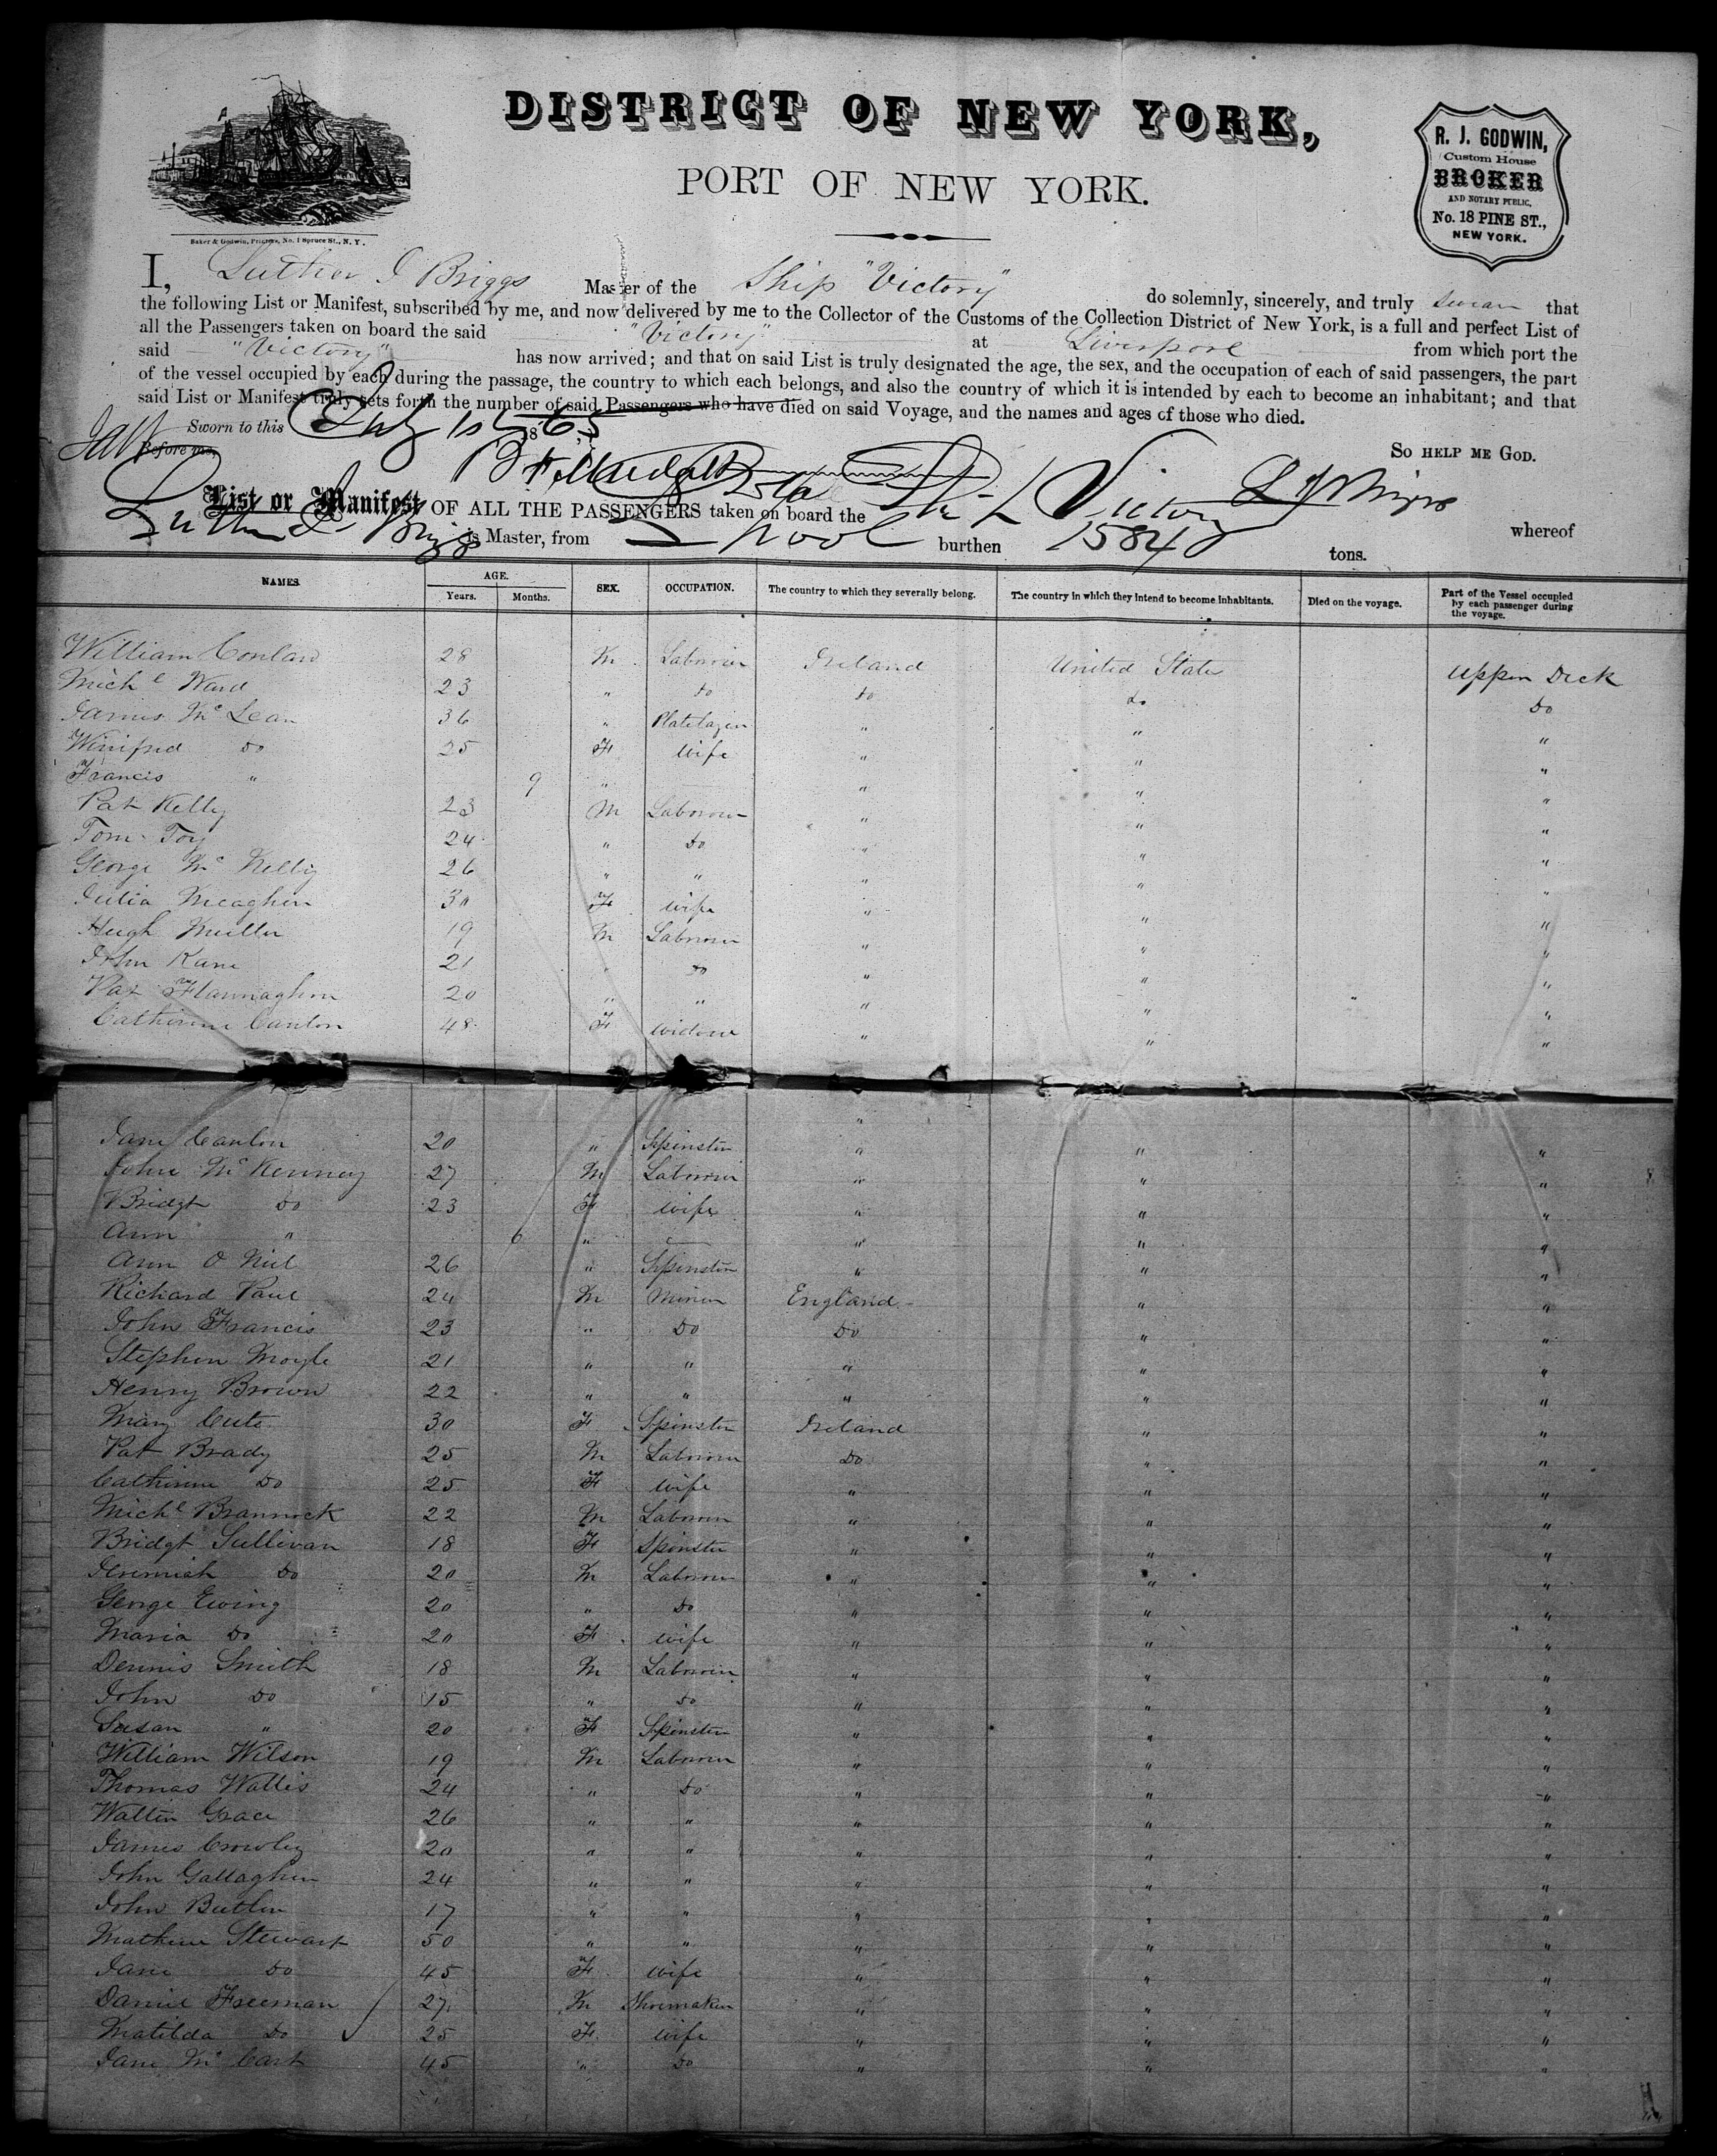 DISTRICT OF NEW YORK,
PORT OF NEW YORK.
Baker & Godwin, Printers, No. 1 Spruce St., N. Y.
R. J. GODWIN,
Custom House
BROKER
AND NOTARY PUBLIC,
No. 18 PINE ST.,
NEW YORK.
I, Luther J Briggs Master of the Ship "Victory" do solemnly, sincerely, and truly swear that
the following List or Manifest, subscribed by me, and now delivered by me to the Collector of the Customs of the Collection District of New York, is a full and perfect List of
all the Passengers taken on board the said "Victory" at Liverpool from which port the
said "Victory" has now arrived; and that on said List is truly designated the age, the sex, and the occupation of each of said passengers, the part
of the vessel occupied by each during the passage, the country to which each belongs, and also the country of which it is intended by each to become an inhabitant; and that
said List or Manifest truly sets forth the number of said Passengers who have died on said Voyage, and the names and ages of those who died.
Sworn to this July 10 1865
Before me, So HELP ME GOD.
L J Briggs
List or Manifest OF ALL THE PASSENGERS taken on board the Ship Victory whereof
Luther J Briggs is Master, from L'pool burthen 1584 tons.
NAMES. AGE. Years. Months. SEX. OCCUPATION. The country to which they severally belong. The country in which they intend to become inhabitants. Died on the voyage. Part of the Vessel occupied by each passenger during the voyage.
William Conlan 28 M Laborer Ireland United State Upper Deck
Michl Ward 23 " do do do Do
James McLean 36 " Platelayer " " "
Winifred Do 25 F Wife " " "
Francis " 9 " " " "
Pat Kelly 23 M Laborer " " "
Tom Foy 24 " Do " " "
George Mc 26 " " " " "
Julia Meagher 30 F Wife " " "
Hugh 19 M Laborer " " "
John Kane 21 " Do " " "
Pat Flannaghen 20 " " " " " "
Catherine Canlon 48 F Widow " " "
"
Jane Canlon 20 " Spinster " " "
John McKenney 27 M Laborer " " "
Bridgt Do 23 F Wife " " "
Ann " 6 " " " "
Ann O Neil 26 " Spinster " " "
Richard Paul 24 M Miner England " "
John Francis 23 " Do Do " "
Stephen Moyle 21 " " " " "
Henry Brown 22 " " " " "
Mary 30 F Spinster Ireland " "
Pat Brady 25 M Laborer Do " "
Catherine Do 25 F Wife " " "
Michl Brannock 22 M Laborer " " "
Bridgt Sullivan 18 F Spinster " " "
Jeremiah Do 20 M Laborer " " "
George Ewing 20 " Do " " "
Maria Do 20 F Wife " " "
Dennis Smith 18 M Laborer " " "
John Do 15 " do " " "
Susan " 20 F Spinster " " "
William Wilson 19 M Laborer " " "
Thomas Wallis 24 " Do " " "
Walter Grace 26 " " " " "
James Crowley 20 " " " " "
John Gallagher 24 " " " " "
John Butler 17 " " " " "
Mathew Stewart 50 " " " " "
Jane Do 45 F Wife " " "
Daniel Freeman 27 M Shoemaker " " "
Matilda Do 25 F Wife " " "
Jane McCart 45 " Do " " "